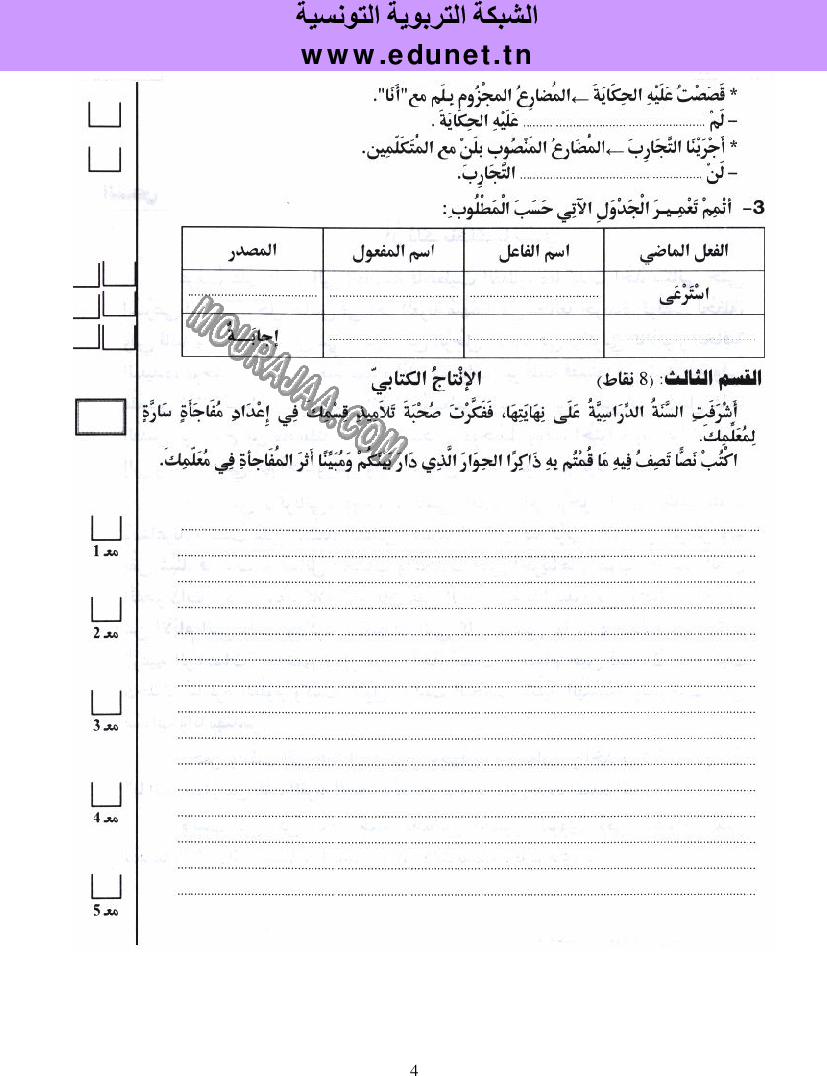 الشبكة التربوية التونسية
www.edunet.tn
* قَصَصْتُ عَلَيْهِ الحِكَايَةَ ← المُضارِعُ المجْزُوم بِلَم مع "أَنَا".
– لَمْ ........................................ عَلَيْهِ الحِكَايَةَ .
* أَجْرَيْنَا التَّجَارِبَ ← المُضَارعُ المَنْصُوب بلَنْ مع المُتَكَلّمِين.
– لَنْ ........................................ التَّجَارِبَ.
3- أُتمِمْ تَعْمِيرَ الْجَدْوَلِ الآتِي حَسَبَ الْمَطْلُوبِ :
الفعل الماضي اسم الفاعل اسم المفعول المصدر
اسْتَرْعَى
إِجابَـــةُ
القسم الثالث: (8 نقاط) الإنْتاجُ الكتابيّ
أَشْرَفَتِ السَّنَةُ الدِّرَاسِيَّةُ عَلَى نِهَايَتِهَا، فَفَكَّرْتَ صُحْبَةَ تَلاَمِيذِ قِسْمِكَ فِي إِعْدَادِ مُفَاجَأَةٍ سَارَّةٍ
لِمُعَلِّمِكَ.
اكْتُبْ نَصًّا تَصِفُ فِيهِ مَا قُمْتُم بِهِ ذَاكِرًا الحِوَارَ الَّذِي دَارَ بَيْنَكُمْ وَمُبَيِّنًا أثرَ المُفَاجأةِ فِي مُعَلّمِكَ.
مع 1
مع 2
مع 3
مع 4
مع 5
MOURAJAA.COM
4